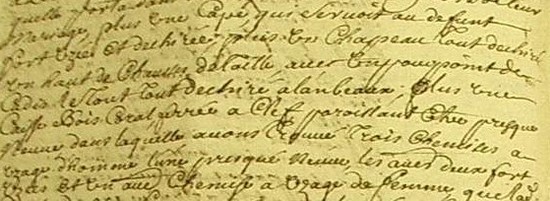 quelle porta
Mariage, plus une Cape qui servoit au defunt
fort uzée et dechirée, plus un Chappeau tout dechiré
un haut de Chausses de taille avec un pourpoint de
Cadis le tout tout dechiré a lanbeaux; plus une
Caisse Bois Coral ferrée a Clef paroissant Etre presque
neuve dans laquelle avons trouvé trois Chemises a
uzage d'homme lune presque neuve, les autres deux fort
uzées et un autre Chemise a uzage de femme, que lad